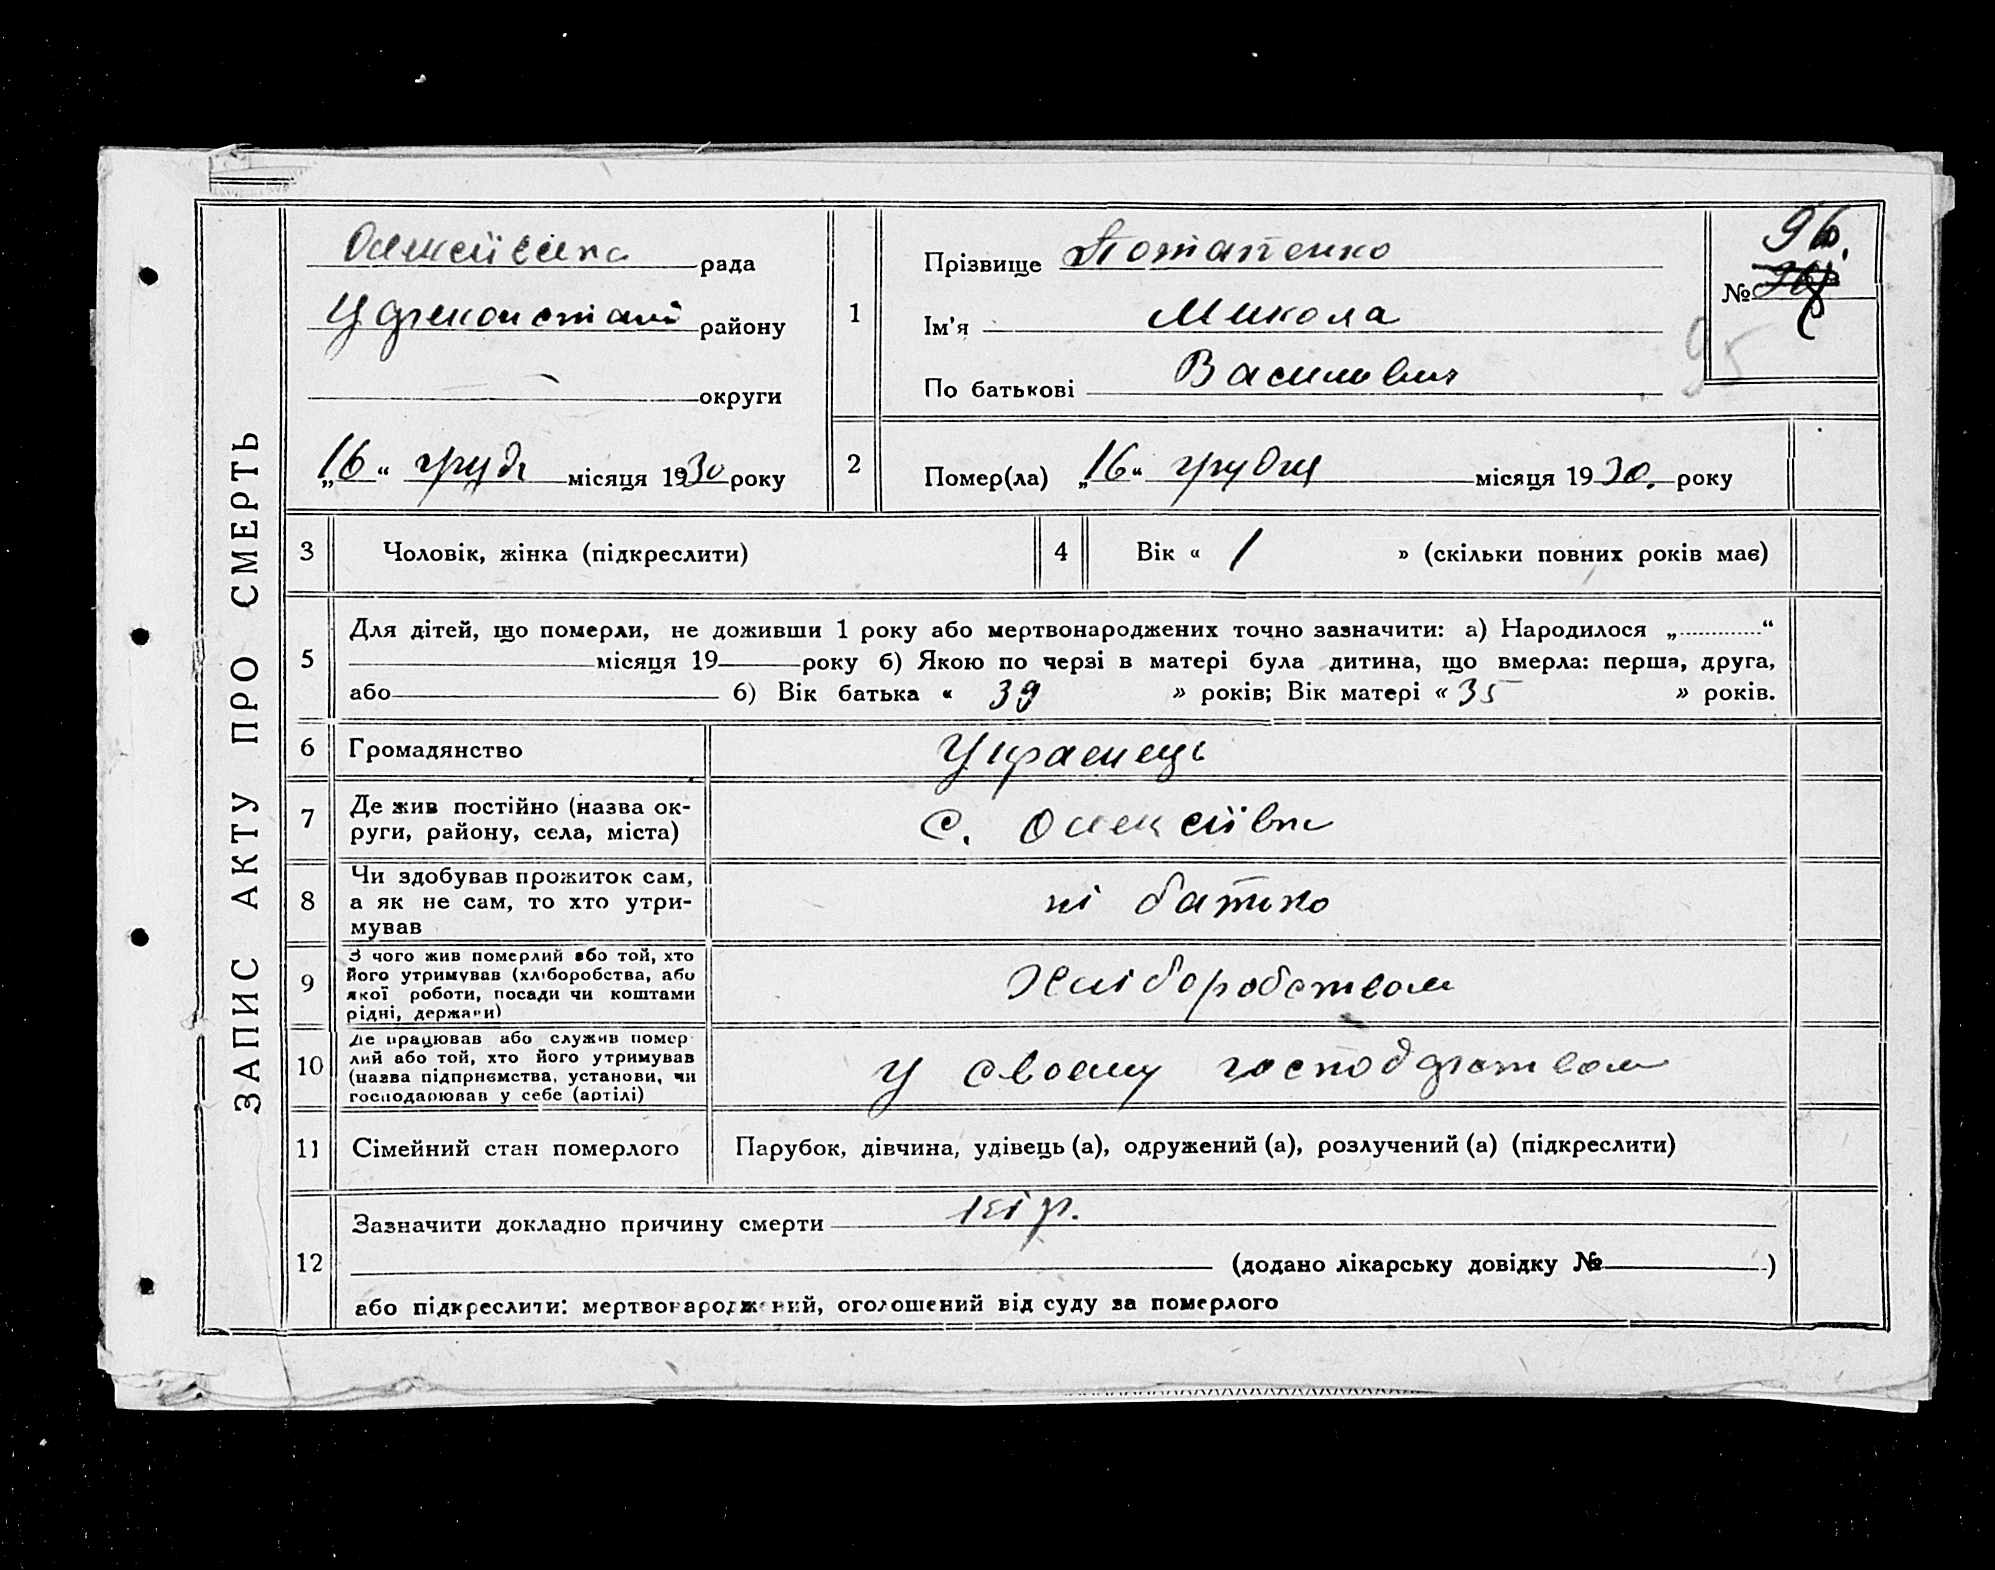 ЗАПИС АКТУ ПРО СМЕРТЬ
Олексіївська рада
району
округи
„16“ грудн місяця 1930 року
1
Прізвище Потапенко
Ім'я Микола
По батькові Василович
96.
№
95
2
Помер(ла) „16“ грудня місяця 1930. року
3 Чоловік, жінка (підкреслити)
4 Вік « 1 » (скільки повних років має)
5
Для дітей, що померли, не доживши 1 року або мертвонароджених точно зазначити: а) Народилося „ “
місяця 19 року б) Якою по черзі в матері була дитина, що вмерла: перша, друга,
або б) Вік батька « 39 » років; Вік матері « 35 » років.
6 Громадянство Украенець
7 Де жив постійно (назва ок-
руги, району, села, міста)
с. Олексіївка
8 Чи здобував прожиток сам,
а як не сам, то хто утри-
мував
ні батько
9 З чого жив померлий або той, хто
його утримував (хліборобства, або
якої роботи, посади чи коштами
рідні, держави)
Хліборобством
10 Де працював або служив помер
лий або той, хто його утримував
(назва підприємства, установи, чи
господарював у себе (артілі)
у своему господрством
11 Сімейний стан померлого Парубок, дівчина, удівець (а), одружений (а), розлучений (а) (підкреслити)
12 Зазначити докладно причину смерти кір.
(додано лікарську довідку № )
або підкреслити: мертвонароджений, оголошений від суду за померлого